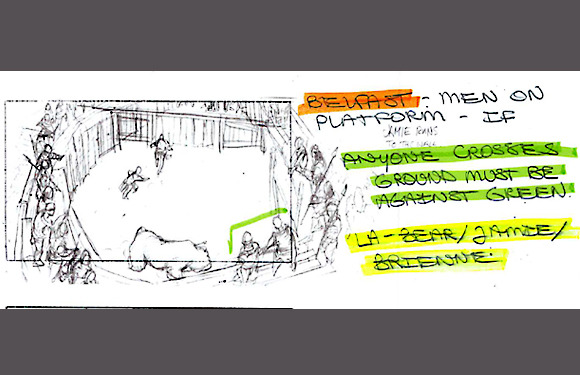 BELFAST - MEN ON
PLATFORM - IF
JAMIE RUNS
TO THE WALL
ANYONE CROSSES
GROUND MUST BE
AGAINST GREEN.
LA - BEAR/JAMIE/
BRIENNE.